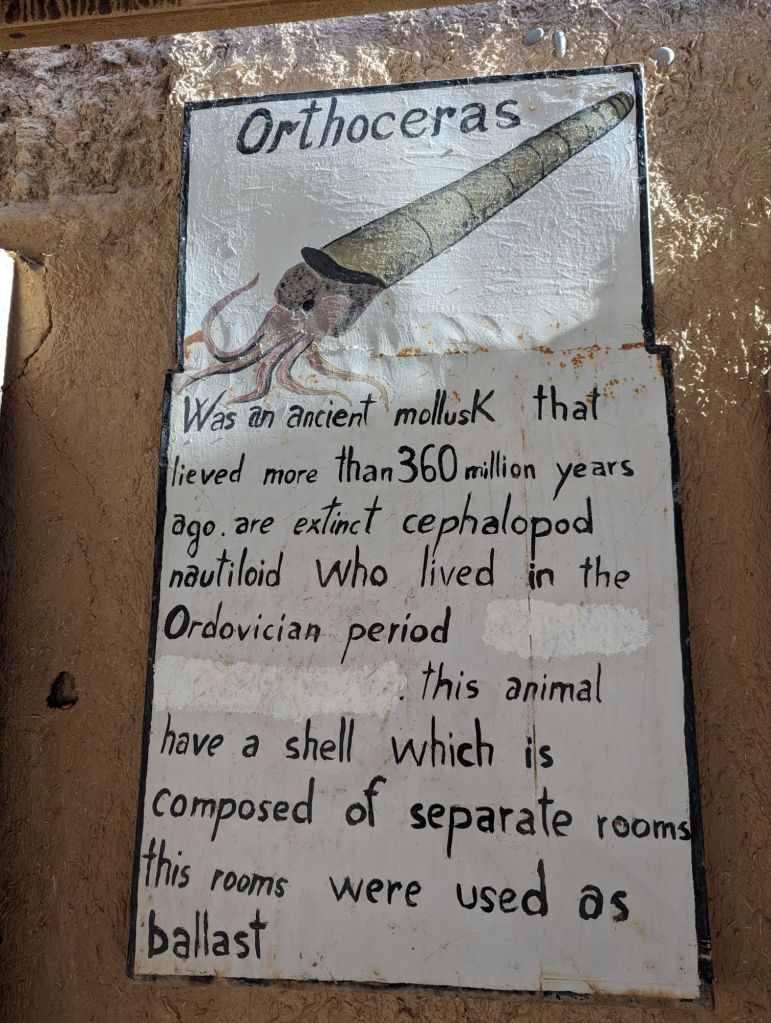 Orthoceras
Was an ancient mollusK that
lieved more than 360 million years
ago. are extinct cephalopod
nautiloid who lived in the
Ordovician period
. this animal
have a shell which is
composed of separate rooms
this rooms were used as
ballast